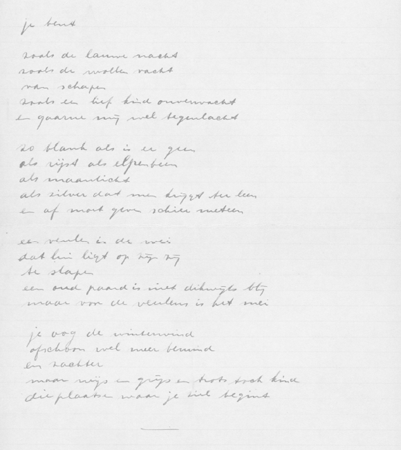 je bent
zoals de lauwe nacht
zoals de wollen vacht
van schapen
zoals een lief kind onverwacht
en gaarne mij wel tegenlacht
zo blank als is er geen
als rijst als elpenbeen
als maanlicht
als zilver dat men krijgt ter leen
en af moet geven schier meteen
een veulen in de wei
dat lui ligt op zijn zij
te slapen
een oud paard is niet dikwijls blij
maar voor de veulens is het mei
je oog de winterwind
ofschoon wel meer bemind
en zachter
maar wijs en grijs en trots toch kind
die plaatse waar je ziel begint